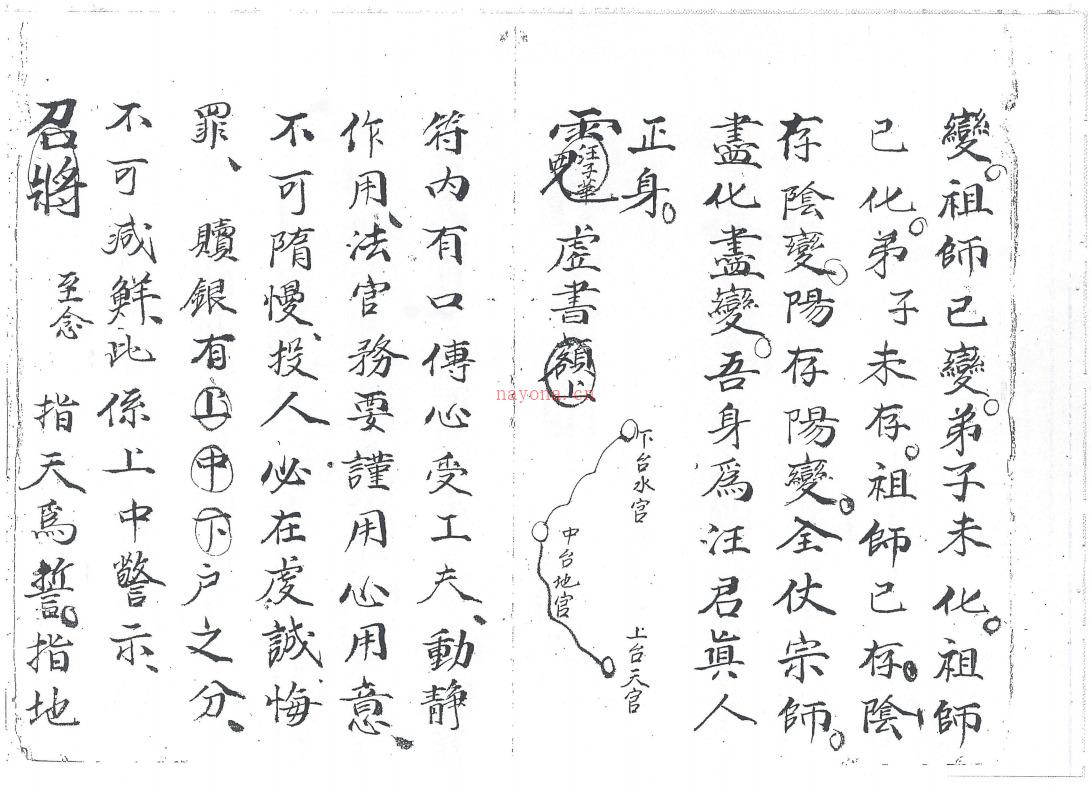 變。祖師已變弟子未化。祖師
已化。弟子未存。祖師已存。陰
存陰變。陽存陽變。全仗宗師。
盡化盡變。吾身為汪君眞人
正身。
汪子華 虛書額上
下台水官
中台地官
上台天官
符内有口傳心受工夫、動靜
作用、法官務要謹用心用意、
不可隋慢、投人必在虔誠、悔
罪、贖銀有上中下户之分、
不可減鮮、此係上中警示、
召將 至念 指天爲誓。指地
nayona.cn